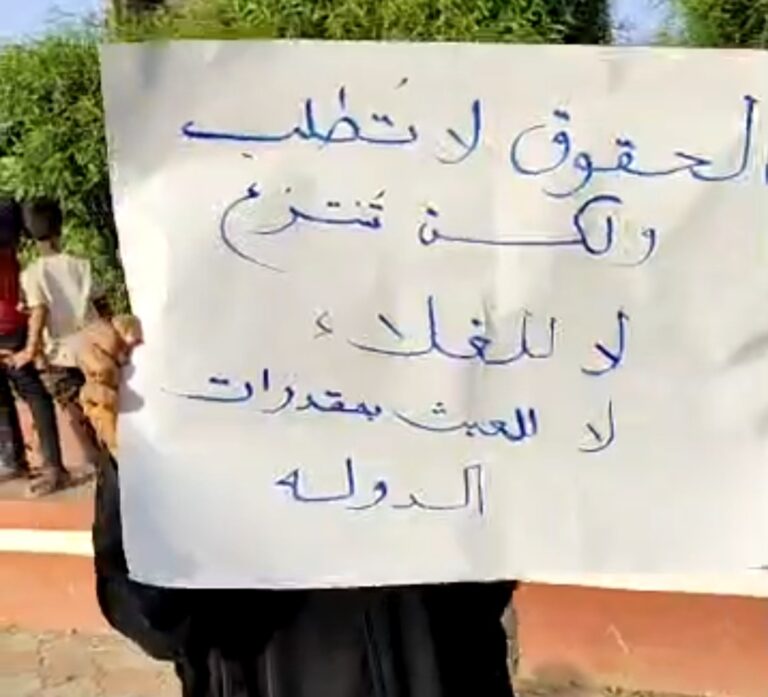 الحقوق لا تُطلب
ولكن تُنتزع
لا للغلاء
لا للعبث بمقدرات
الدوله